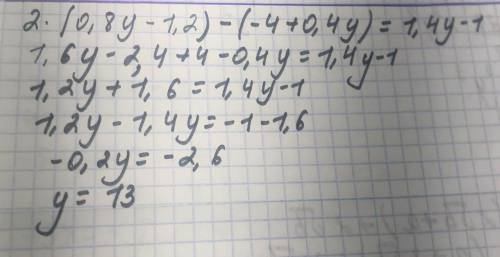 2·(0,8y-1,2)-(-4+0,4y)=1,4y-1
1,6y-2,4+4-0,4y=1,4y-1
1,2y+1,6=1,4y-1
1,2y-1,4y=-1-1,6
-0,2y=-2,6
y=13